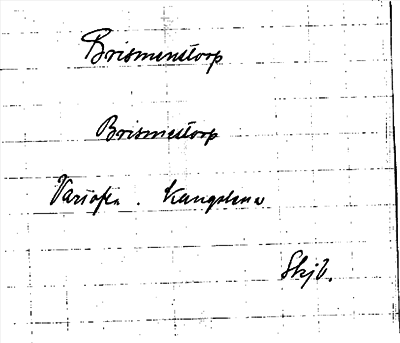 Brismenstorp
Brismestorp
Vartofta. Kungslena
Skjb.